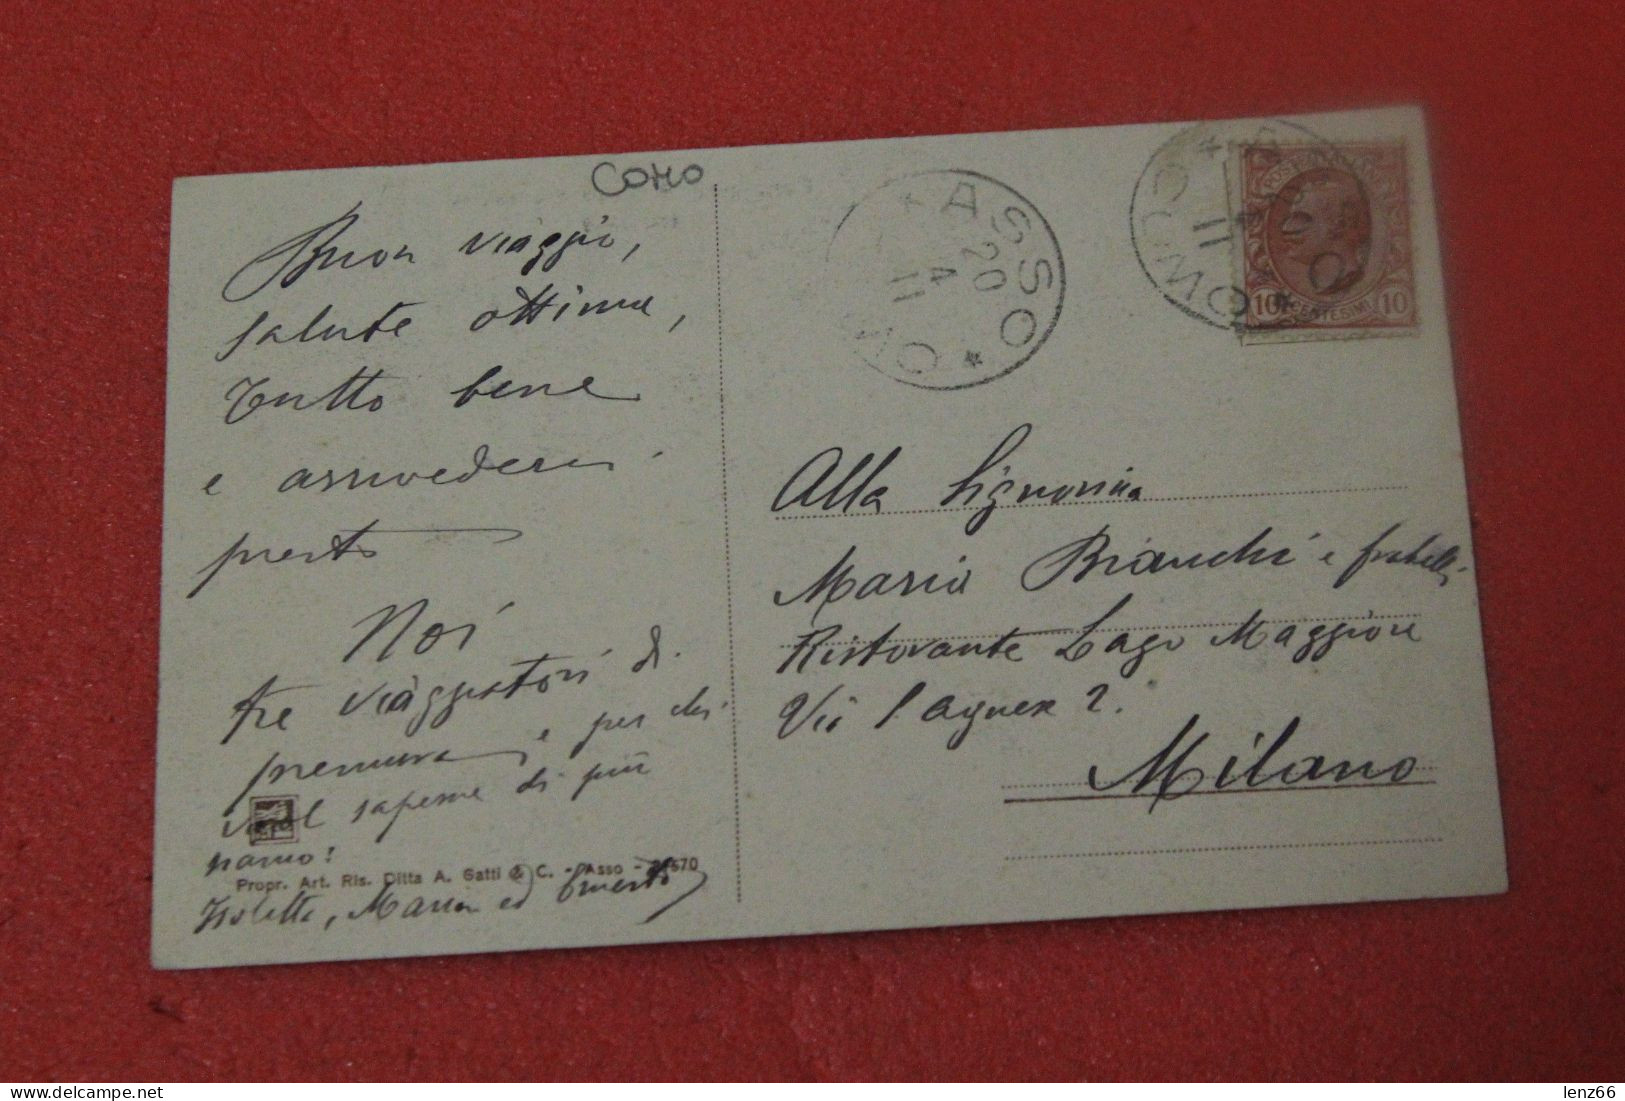 COMO
Buon viaggio,
salute ottima,
tutto bene
e arrivederci
presto
Noi
tre viaggiatori di
premura e per chi
vuol saperne di più
siamo!
Propr. Art. Ris. Ditta A. Gatti & C. - Asso - 570
Isoletta, Maria ed Ernesto
* ASSO *
20
4
11
COMO
ASSO *
11
COMO
POSTE ITALIANE
10 CENTESIMI 10
Alla Signorina
Maria Bianchi e fratelli
Ristorante Lago Maggiore
Via
Milano
lenz66